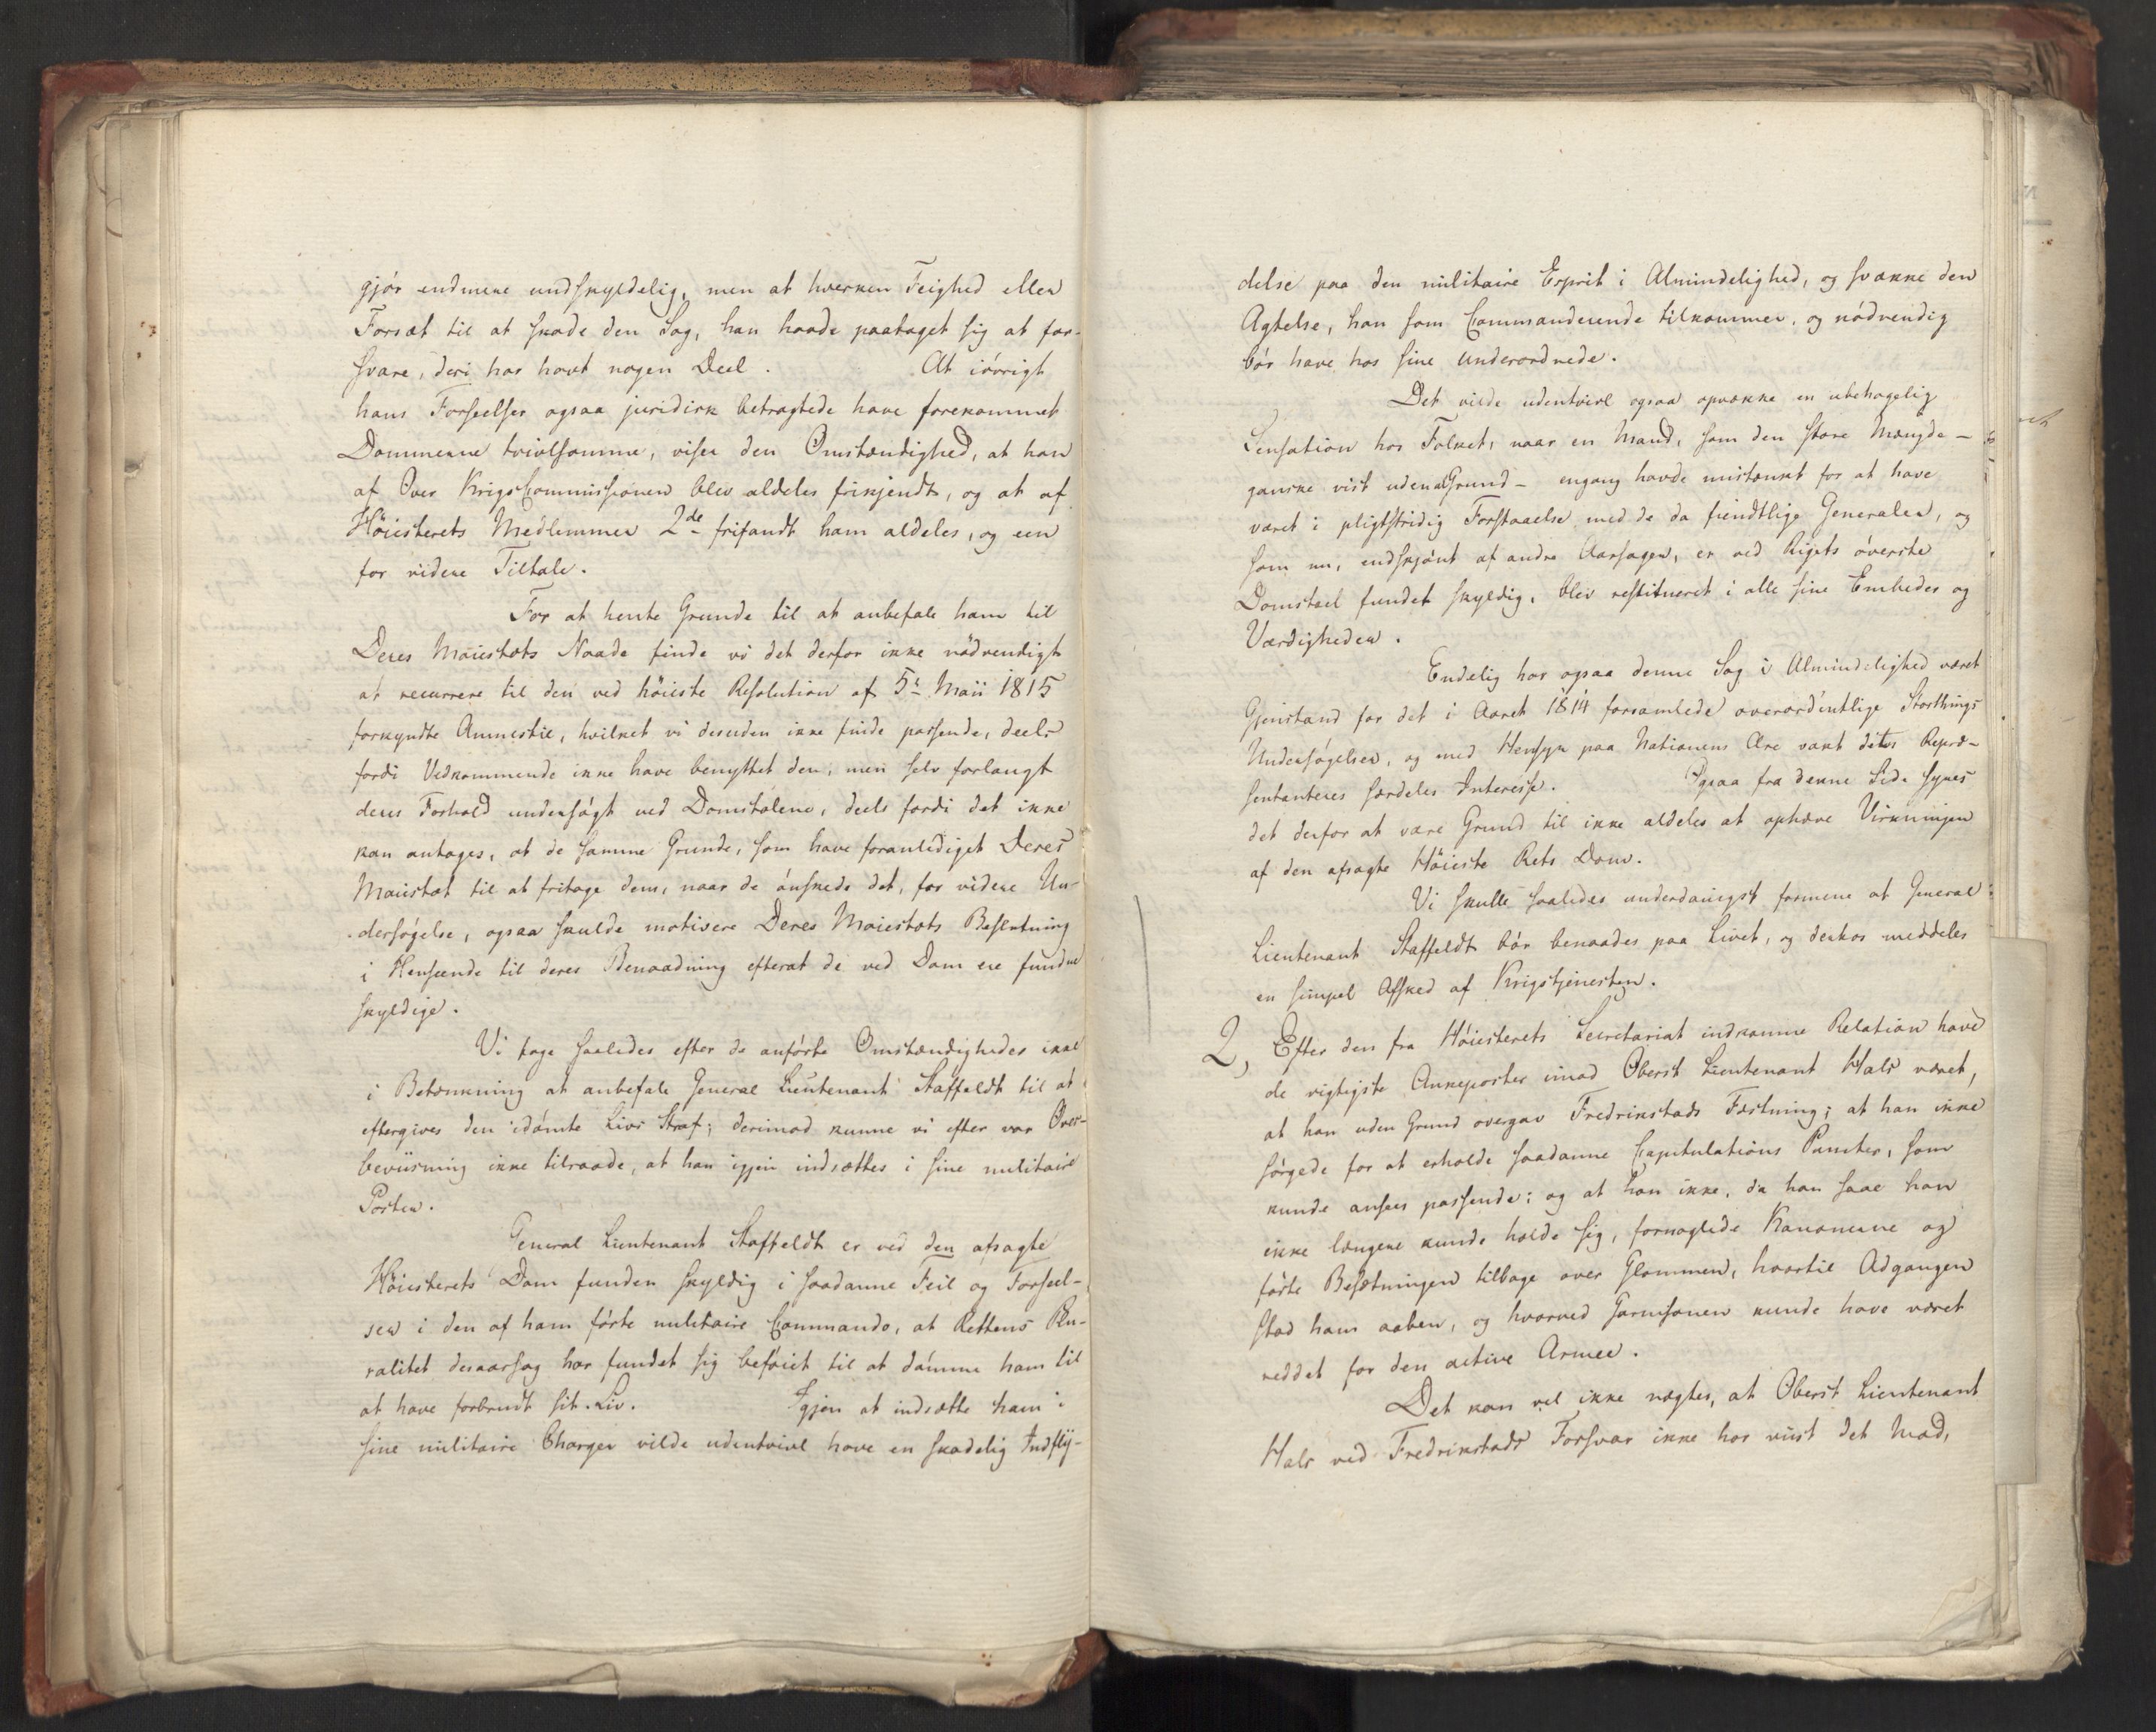 gjør endmere undskyldelig, men at hverken Feighed eller
Forsæt til at skade den Sag, han havde paataget sig at for-
svare, deri har havt nogen Deel. At iøvrigt
hans Forseelser ogsaa juridisk betragtede have forekommet
Dommerne tvivlsomme, viser den Omstændighed, at han
af Over KrigsCommissionen blev aldeles frikjendt, og at af
Höiesterets Medlemmer 2de frifandt ham aldeles, og een
for videre Tiltale.
For at hente Grunde til at anbefale ham til
Deres Maiestæts Naade finde vi det derfor ikke nødvendigt
at recurrere til den ved höieste Resolution af 5te Maii 1815
forkyndte Amnestie, hvilket vi desuden ikke finde passende, deels
fordi Vedkommende ikke have benyttet den, men selv forlangt
deres Forhold undersøgt ved Domstolene, deels fordi det ikke
kan antages, at de samme Grunde, som have foranlediget Deres
Maiestæt til at fritage dem, naar de ønskede det, for videre Un-
dersøgelse, ogsaa skulde motivere Deres Maiestæts Beslutning
i Henseende til deres Benaadning efterat de ved Dom ere fundne
skyldige.
Vi tage saaledes efter de anførte Omstændigheder ikke
i Betænkning at anbefale General Lieutenant Staffeldt til at
eftergives den idømte Livs Straf; derimod kunne vi efter vor Over-
beviisning ikke tilraade, at han igjen indsættes i sine militaire
Poster.
General Lieutenant Staffeldt er ved den afsagte
Höiesterets Dom funden skyldig i saadanne Feil og Forseel-
ser i den af ham førte militaire Commando, at Rettens Plu-
ralitet desaarsag har fundet sig beføiet til at dømme ham til
at have forbrudt sit Liv. Igjen at indsætte ham i
sine militaire Charger vilde udentvivl have en skadelig Indfly-
delse paa den militaire Esprit i Almindelighed, og svække den
Agtelse, han som Commanderende tilkommer, og nødvendig
bør have hos sine Underordnede.
Det vilde udentvivl ogsaa opvække en ubehagelig
Sensation hos Folket, naar en Mand, som den store Mængde -
ganske vist uden al Grund - engang havde mistænkt for at have
været i pligtstridig Forstaaelse med de da fiendtlige Generaler, og
som nu, endskjønt af andre Aarsager, er ved Rigets øverste
Domstoel fundet skyldig, blev restitueret i alle sine Embeder og
Værdigheder.
Endelig har ogsaa denne Sag i Almindelighed været
Gjenstand for det i Aaret 1814 forsamlede overordentlige Storthings
Undersøgelser, og med Hensyn paa Nationens Ære vakt dets Repræ-
sentanteres særdeles Interesse. Ogsaa fra denne Side synes
det derfor at være Grund til ikke aldeles at ophæve Virkningen
af den afsagte Höieste Rets Dom.
Vi skulle saaledes underdanigst formene at General
Lieutenant Staffeldt bør benaades paa Livet, og derhos meddeles
en simpel Afsked af Krigstjenesten.
2, Efter den fra Höiesterets Secretariat indkomne Relation have
de vigtigste Ankeposter imod Oberst Lieutenant Hals været,
at han uden Grund overgav Fredrikstads Fæstning; at han ikke
sørgede for at erholde saadanne Capitulations Puncter, som
kunde ansees passende; og at han ikke, da han saae han
ikke længere kunde holde sig, fornaglede Kanonerne og
førte Besætningen tilbage over Glommen, hvortil Adgangen
stod ham aaben, og hvorved Garnisonen kunde have været
reddet for den active Armee.
Det kan vel ikke nægtes, at Oberst Lieutenant
Hals ved Fredrikstads Forsvar ikke har viist det Mod,